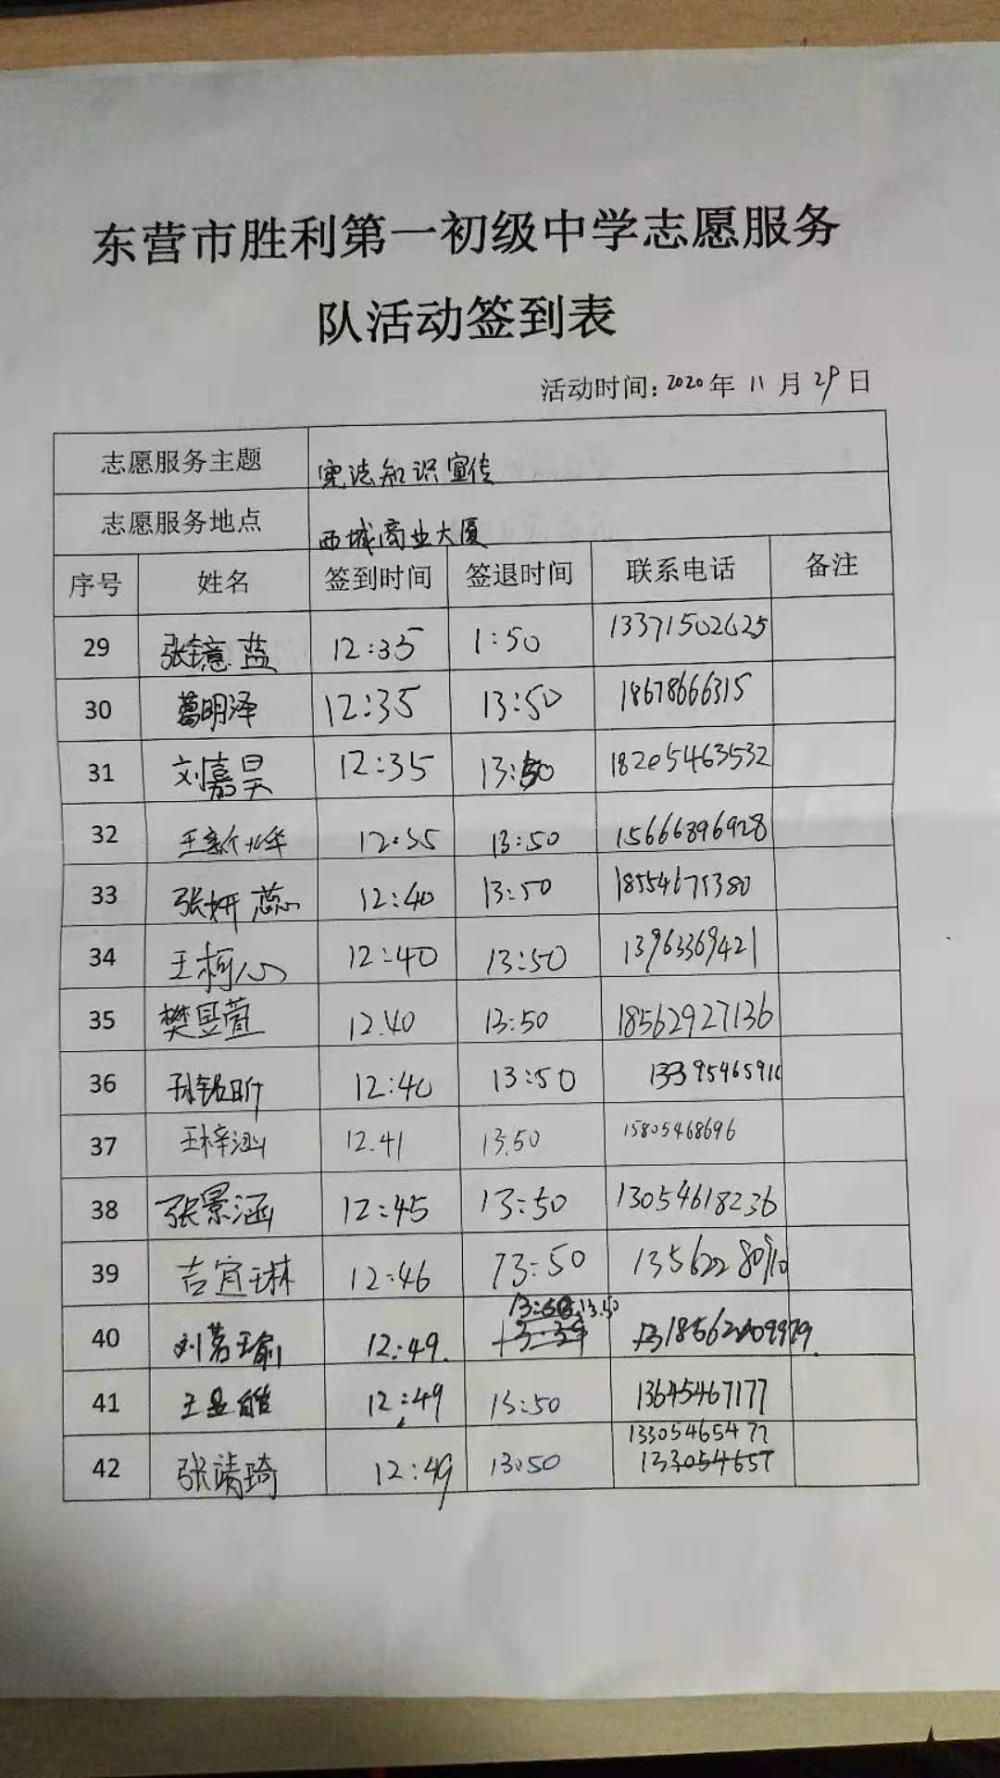 东营市胜利第一初级中学志愿服务
队活动签到表
活动时间:2020年11月29日
志愿服务主题 宪法知识宣传
志愿服务地点 西城商业大厦
序号 姓名 签到时间 签退时间 联系电话 备注
29 张镱蓝 12:35 1:50 13371502625
30 葛明泽 12:35 13:50 18678666315
31 刘嘉昊 12:35 13:50 18205463532
32 王新烨 12:35 13:50 15666896928
33 张妍蕊 12:40 13:50 18554675380
34 王柯心 12:40 13:50 13963369421
35 樊昱萱 12.40 13:50 18562927136
36 孙铭昕 12:40 13:50
37 王梓涵 12.41 13.50 15805468696
38 张景涵 12:45 13:50 13054618236
39 吉宜琳 12:46 13:50
40 刘茗瑜 12:49. 13.50
41 12:49 13:50 13645467177
42 张靖琦 12:49 13:50 13305465477